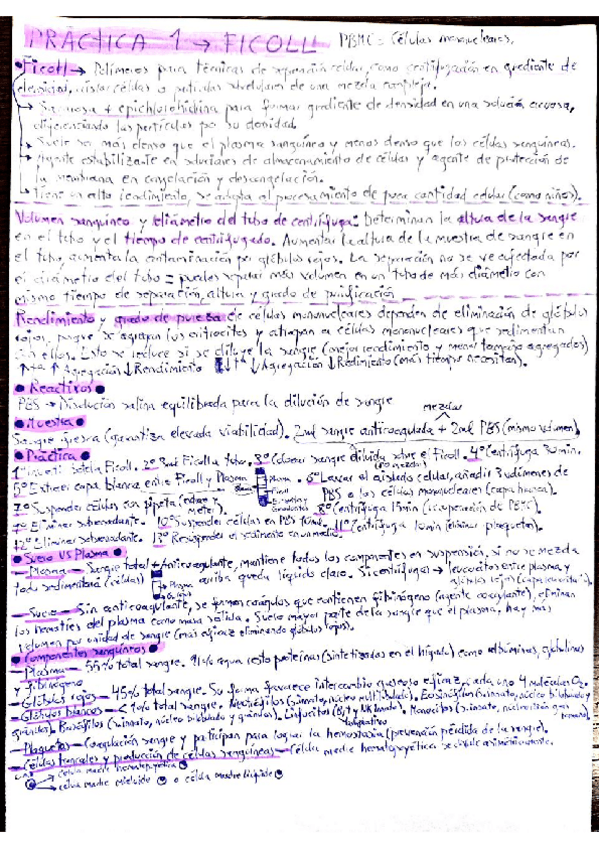 PRÁCTICA 1 → FICOLL PBMC = Células mononucleares.
Ficoll → Polímeros para técnicas de separación celular, como centrifugación en gradiente de
densidad, aislar células o partículas subcelulares de una mezcla compleja.
Sacarosa + epiclorohidrina para formar gradiente de densidad en una solución acuosa,
diferenciando las partículas por su densidad.
Suele ser más denso que el plasma sanguíneo y menos denso que las células sanguíneas.
Agente estabilizante en soluciones de almacenamiento de células y agente de protección de
la membrana en congelación y descongelación.
Tiene un alto rendimiento, se adapta al procesamiento de poca cantidad celular (como niños).
Volumen sanguíneo y diámetro del tubo de centrífuga: Determinan la altura de la sangre
en el tubo y el tiempo de centrifugado. Aumentar la altura de la muestra de sangre en
el tubo, aumenta la contaminación por glóbulos rojos. La separación no se ve afectada por
el diámetro del tubo = puedes separar más volumen en un tubo de más diámetro con
mismo tiempo de separación, altura y grado de purificación
Rendimiento y grado de pureza de células mononucleares dependen de eliminación de glóbulos
rojos, porque se agrupan los eritrocitos y atrapan a células mononucleares que sedimentan
con ellos. Esto se reduce si se diluye la sangre (mejor rendimiento y menor tamaño agregados)
↑ Agregación ↓ Rendimiento ↓ Agregación ↓ Rendimiento (más tiempo necesitan).
Reactivos
PBS → Disolución salina equilibrada para la dilución de sangre
Muestra mezclar
Sangre fresca (garantiza elevada viabilidad). 2ml sangre anticoagulada + 2ml PBS (mismo volumen)
Práctica
1º Invertir botella Ficoll. 2º 3ml Ficoll a tubo. 3º Colocar sangre diluida sobre el Ficoll. 4º Centrífuga 30min.
(no mezclar)
5º Extraer capa blanca entre Ficoll y Plasma Plasma 6º Lavar el aislado celular, añadir 3 volúmenes de
Ficoll
PBS a las células mononucleares (capa blanca).
7º Suspender células con pipeta (sacar y meter). 8º Centrífuga 15min (recuperación de PBMC).
9º Eliminar sobrenadante. 10º Suspender células en PBS 11º Centrífuga 10min (eliminar plaquetas).
12º Eliminar sobrenadante. 13º Resuspender el sedimento en medio.
Suero VS Plasma
Plasma — Sangre total + Anticoagulante, mantiene todos los componentes en suspensión, si no se mezcla
todo sedimentará (células) Plasma arriba queda líquido claro. Si centrifugas → leucocitos entre plasma y
glóbulos rojos
Suero — Sin anticoagulante, se forman coágulos que contienen fibrinógeno (agente coagulante), eliminan
los del plasma como masa sólida. Suero mayor parte de la sangre que el plasma, hay más
volumen por unidad de sangre (más eficaz eliminando glóbulos rojos).
Componentes sanguíneos
Plasma — 55% total sangre. 91% agua resto proteínas (sintetizadas en el hígado) como albúminas, globulinas
y fibrinógeno
Glóbulos rojos — 45% total sangre. Su forma favorece intercambio gaseoso eficaz, cada uno 4 moléculas O₂.
Glóbulos blancos — < 1% total sangre. Neutrófilos (innato, núcleo multilobulado). Eosinófilos (innato, núcleo bilobulado y
gránulos). Basófilos (innato, núcleo bilobulado y gránulos). Linfocitos (B, T y NK innato). Monocitos (innato, núcleo
adaptativo
Plaquetas — Coagulación sangre y participan para lograr la hemostasia (prevención pérdida de la sangre).
Células troncales y producción de células sanguíneas — Célula madre hematopoyética se divide asimétricamente.
célula madre hematopoyética
célula madre mieloide o célula madre linfoide